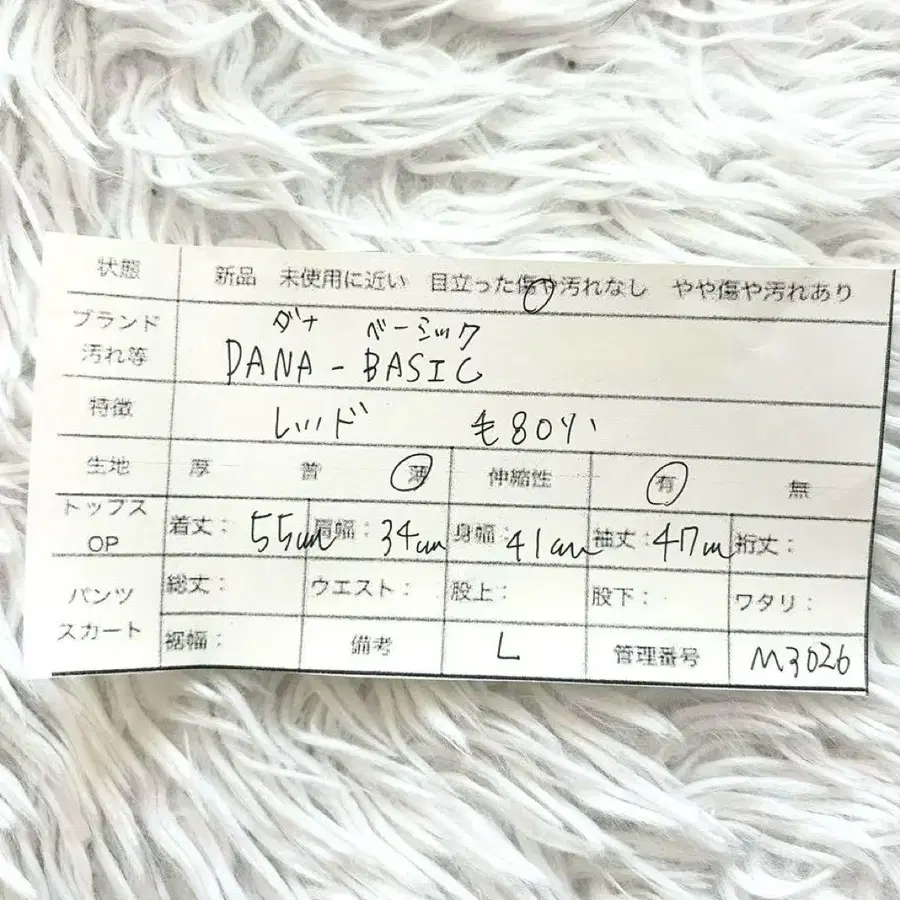 状態 新品 未使用に近い 目立った傷や汚れなし やや傷や汚れあり
ダナ ベーシック
ブランド
汚れ等 DANA-BASIC
特徴 レッド 毛80%
生地 厚 普 薄 伸縮性 有 無
トップス
OP 着丈: 55cm 肩幅: 34cm 身幅: 41cm 袖丈: 47cm 裄丈:
パンツ
スカート
総丈: ウエスト: 股上: 股下: ワタリ:
裾幅: 備考 L 管理番号 M3026